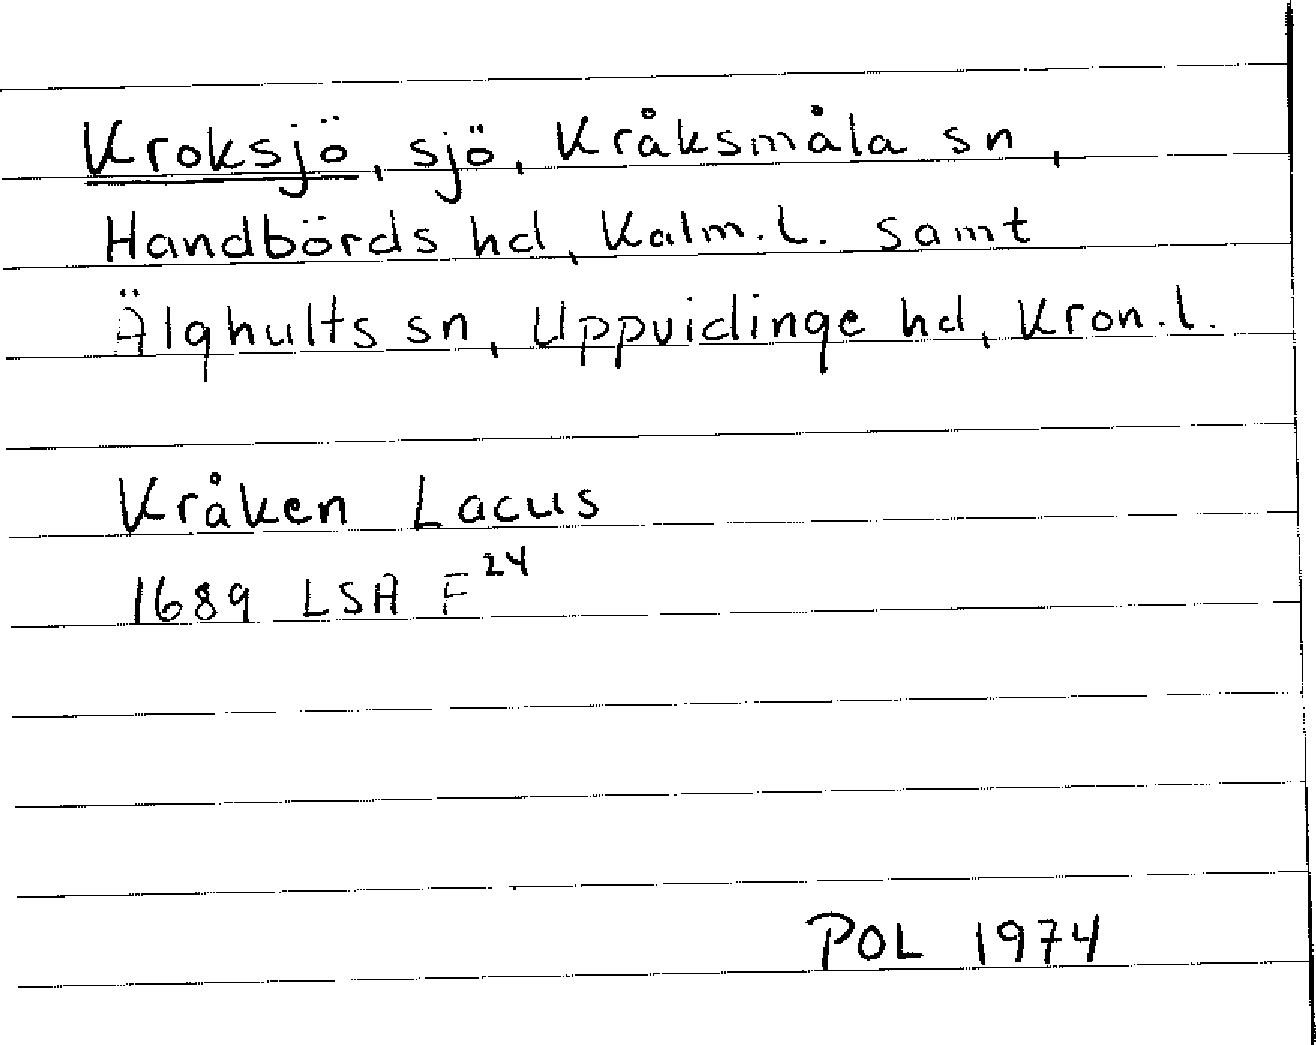 Kroksjö, sjö, Kråksmåla sn,
Handbörds hd, Kalm.l. samt
Älghults sn, Uppvidinge hd, Kron.l.
Kråken Lacus
1689 LSA F24
POL 1974